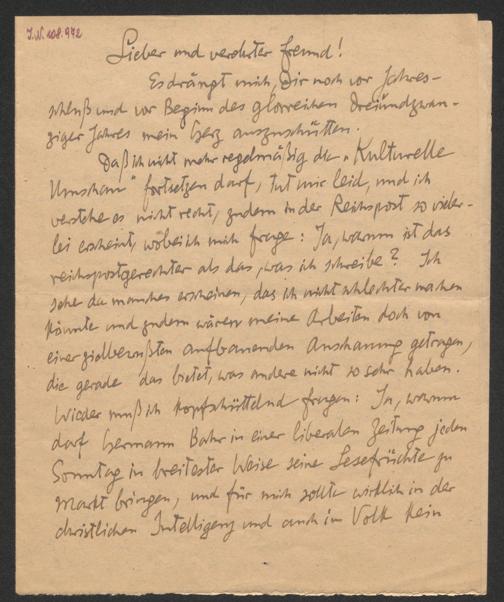 I.N. 108.972
Lieber und verehrter Freund!
Es drängt mich, Dir noch vor Jahres-
schluß und vor Beginn des glorreichen Dreiundzwan-
ziger Jahres mein Herz auszuschütten.
Daß ich nicht mehr regelmäßig die „Kulturelle
Umschau" fortsetzen darf, tut mir leid, und ich
verstehe es nicht recht, zudem in der Reichspost so vieler-
lei erscheint, wobei ich mich frage: Ja, warum ist das
reichspostgerechter als das, was ich schreibe? Ich
sehe da manches erscheinen, das ich nicht schlechter machen
könnte und zudem wären meine Arbeiten doch von
einer zielbewußten aufbauenden Anschauung getragen,
die gerade das bietet, was andere nicht so sehr haben.
Wieder muß ich kopfschüttelnd fragen: Ja, warum
darf Hermann Bahr in einer liberalen Zeitung jeden
Sonntag in breitester Weise seine Lesefrüchte zu
Markt bringen, und für mich sollte wirklich in der
christlichen Intelligenz und auch im Volk kein